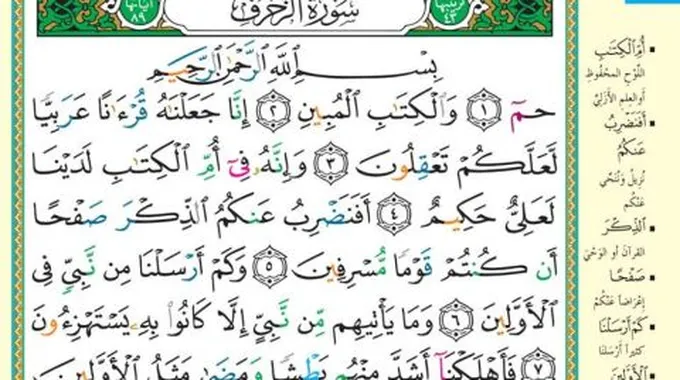 آياتها ٨٩
سُورَةُ الزُّخْرُفِ
ترتيبها ٤٣
بِسْمِ ٱللَّهِ ٱلرَّحْمَٰنِ ٱلرَّحِيمِ
حمٓ ١ وَٱلْكِتَٰبِ ٱلْمُبِينِ ٢ إِنَّا جَعَلْنَٰهُ قُرْءَٰنًا عَرَبِيًّا
لَّعَلَّكُمْ تَعْقِلُونَ ٣ وَإِنَّهُۥ فِىٓ أُمِّ ٱلْكِتَٰبِ لَدَيْنَا
لَعَلِىٌّ حَكِيمٌ ٤ أَفَنَضْرِبُ عَنكُمُ ٱلذِّكْرَ صَفْحًا
أَن كُنتُمْ قَوْمًا مُّسْرِفِينَ ٥ وَكَمْ أَرْسَلْنَا مِن نَّبِىٍّ فِى
ٱلْأَوَّلِينَ ٦ وَمَا يَأْتِيهِم مِّن نَّبِىٍّ إِلَّا كَانُوا۟ بِهِۦ يَسْتَهْزِءُونَ
٧ فَأَهْلَكْنَآ أَشَدَّ مِنْهُم بَطْشًا وَمَضَىٰ مَثَلُ ٱلْأَوَّلِينَ
▪ أُمِّ ٱلْكِتَٰبِ
اللَّوْحِ المحْفُوظِ
أو العِلمِ الأَزَلِيِّ
▪ أَفَنَضْرِبُ
عَنكُمُ
نُزِيلُ وَنُنَحِّي
عَنْكُم
▪ ٱلذِّكْرَ
القرآن أو الوَحْيَ
▪ صَفْحًا
إِعْرَاضاً عَنْكُمْ
▪ كَمْ أَرْسَلْنَا
كثيراً أرْسَلْنَا
▪ ٱلْأَوَّلِينَ